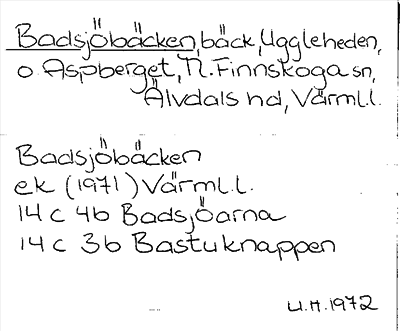 Badsjöbäcken, bäck, Uggleheden,
o. Aspberget, N. Finnskoga sn,
Älvdals hd, Värml.l.
Badsjöbäcken
ek (1971) Värml.l.
14 C 4b Badsjöarna
14 C 3b Bastuknappen
U.H. 1972